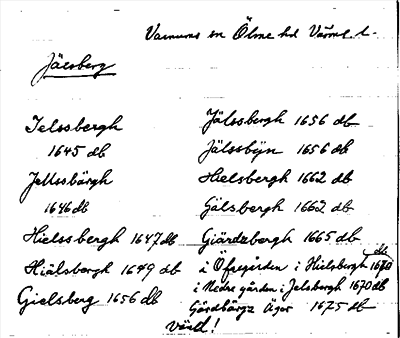 Varnums sn Ölme hd Värml. l.
Jälsberg
Jelssbergh
1645 db
Jellssbärgh
1646 db
Hielssbergh 1647 db
Hiälsbergh 1649 db
Gielsberg 1656 db
Jälssbergh 1656 db
Jälssbÿn 1656 db
Hielsbergh 1662 db
Gälsbergh 1662 db
Giärdzbergh 1665 db
i Öfregården i Hielsbergh 1670 db
i Nedre gården i Jelsbergh 1670 db
Gärdbärgz Ägor 1675 db
värd!